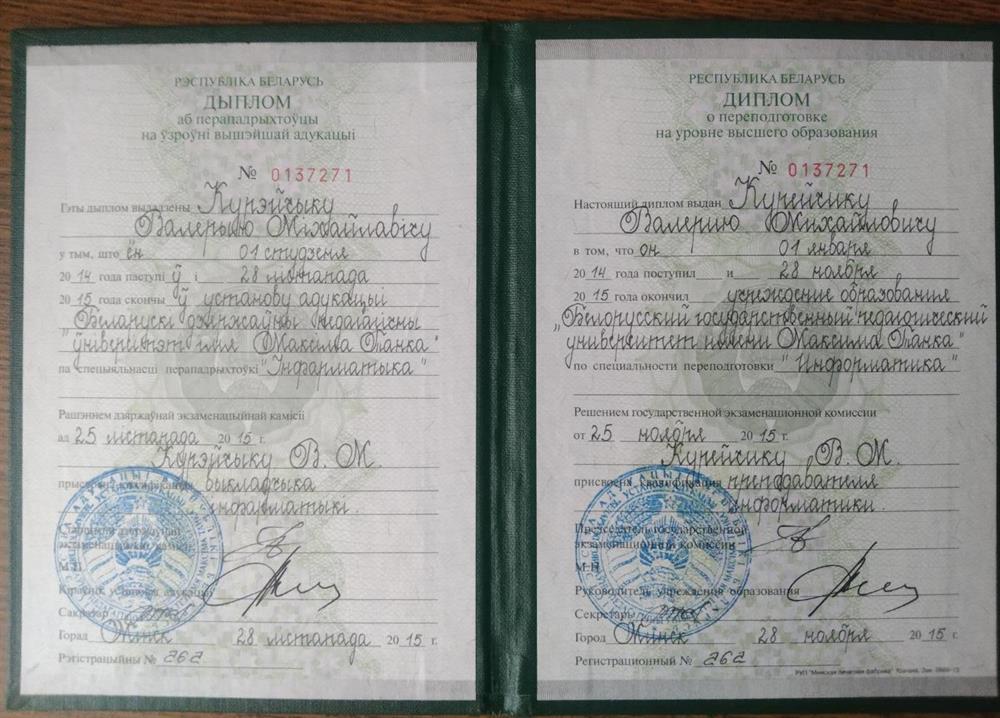 РЭСПУБЛІКА БЕЛАРУСЬ
ДЫПЛОМ
аб перападрыхтоўцы
на ўзроўні вышэйшай адукацыі
№ 0137271
Гэты дыплом выдадзены Курэйчыку
Валерыю Міхайлавічу
у тым, што ён 01 студзеня
2014 года паступіў і 28 лістапада
2015 года скончыў установу адукацыі
"Беларускі дзяржаўны педагагічны
ўніверсітэт імя Максіма Танка"
па спецыяльнасці перападрыхтоўкі "Інфарматыка"
Рашэннем дзяржаўнай экзаменацыйнай камісіі
ад 25 лістапада 2015 г.
Курэйчыку В. М.
прысвоена кваліфікацыя выкладчыка
інфарматыкі.
Старшыня дзяржаўнай
экзаменацыйнай камісіі
М.П.
Кіраўнік установы адукацыі
Сакратар
Горад Мінск 28 лістапада 2015 г.
Рэгістрацыйны № 262
РЕСПУБЛИКА БЕЛАРУСЬ
ДИПЛОМ
о переподготовке
на уровне высшего образования
№ 0137271
Настоящий диплом выдан Курейчику
Валерию Михайловичу
в том, что он 01 января
2014 года поступил и 28 ноября
2015 года окончил учреждение образования
"Белорусский государственный педагогический
университет имени Максима Танка"
по специальности переподготовки "Информатика"
Решением государственной экзаменационной комиссии
от 25 ноября 2015 г.
Курейчику В. М.
присвоена квалификация преподавателя
информатики.
Председатель государственной
экзаменационной комиссии
М.П.
Руководитель учреждения образования
Секретарь
Город Минск 28 ноября 2015 г.
Регистрационный № 262
РУП "Минская печатная фабрика"